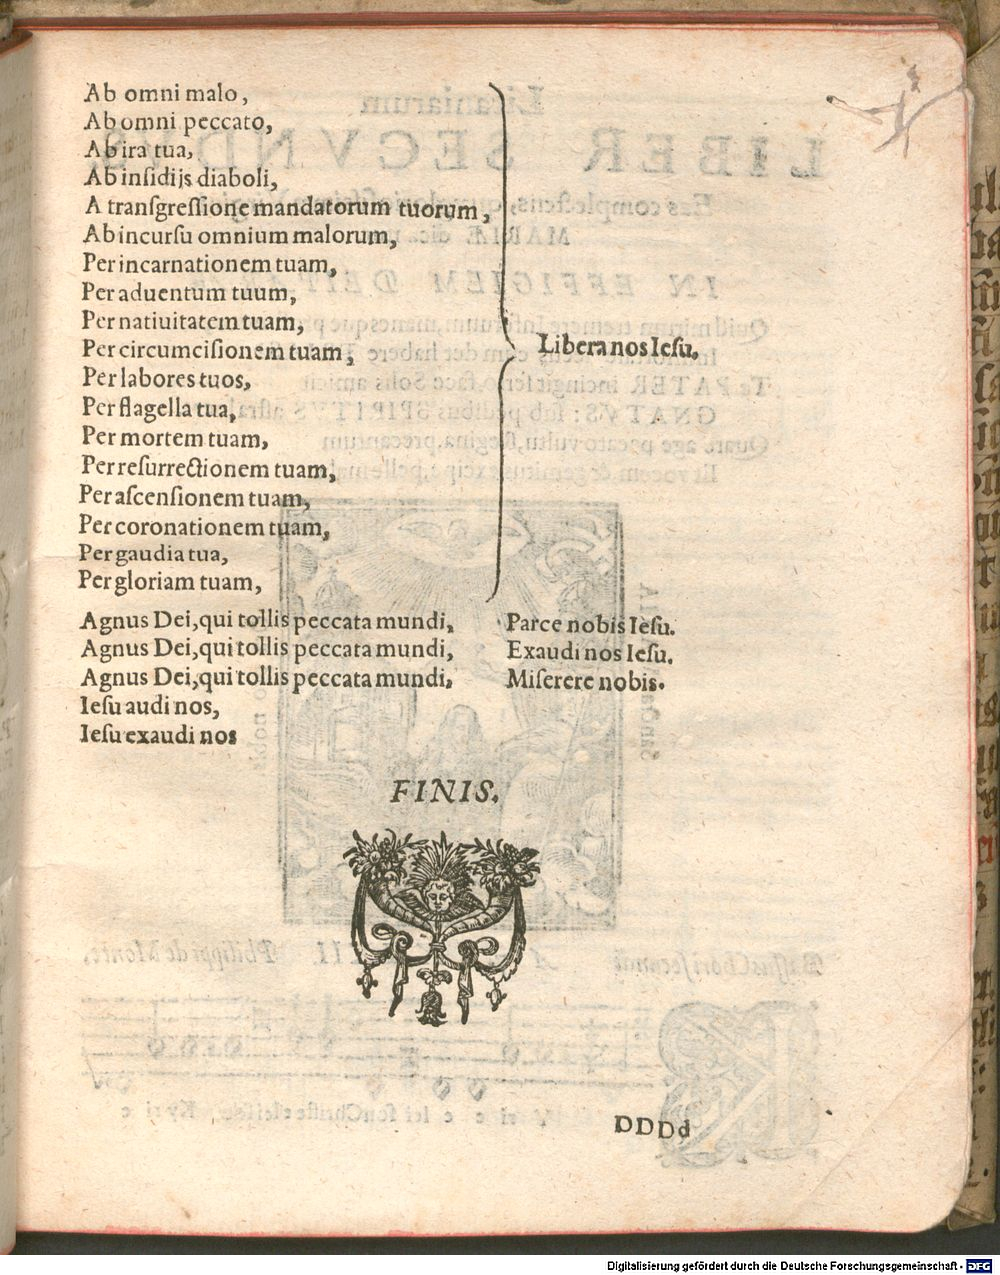 Ab omni malo,
Ab omni peccato,
Ab ira tua,
Ab inſidijs diaboli,
A tranſgreſſione mandatorum tuorum,
Ab incurſu omnium malorum,
Per incarnationem tuam,
Per aduentum tuum,
Per natiuitatem tuam,
Per circumciſionem tuam,
Per labores tuos,
Per flagella tua,
Per mortem tuam,
Per reſurrectionem tuam,
Per aſcenſionem tuam,
Per coronationem tuam,
Per gaudia tua,
Per gloriam tuam,
Libera nos Ieſu.
Agnus Dei, qui tollis peccata mundi, Parce nobis Ieſu.
Agnus Dei, qui tollis peccata mundi, Exaudi nos Ieſu.
Agnus Dei, qui tollis peccata mundi, Miſerere nobis.
Ieſu audi nos,
Ieſu exaudi nos
FINIS.
DDDd
Digitalisierung gefördert durch die Deutsche Forschungsgemeinschaft - DFG